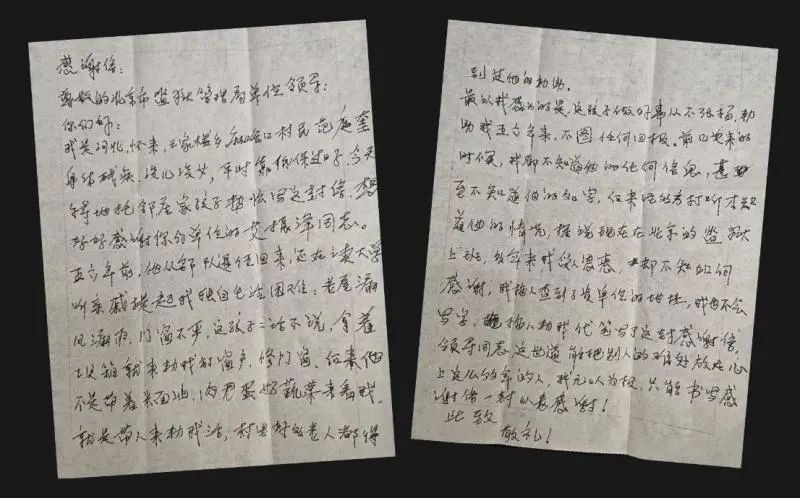 感谢信：
尊敬的北京市监狱管理局单位领导：
你们好：
我是河北怀来，王家楼乡麻峪口村民范庭奎
身体残疾，没儿没女，平时靠低保过日子，今天
特地托邻居家孩子替我写这封信，想
好好感谢你们单位的艾振泽同志。
五六年前，他从部队退伍回来，还在上卖大学
听亲戚提起我独自生活困难：老屋漏
风漏雨，门窗不严，这孩子二话不说，拿着
工具箱就来助我钉窗户，修门窗，后来他
不是带着米面油，肉鸡蛋好蔬菜来看我，
就是带人来助我活，村里好多老人都得
到过他的助。
最让我感动的是，这孩子做好事从不张扬，助
助我五六年来，不图任何回报。前几年来的
时候，我都不知道他的任何信息，甚
至不知道他的名字，后来经多方打听才知
道他的情况，据说现在在北京的监狱
上班，多年来我受人恩惠，却不知如何
感谢，我托人查到了贵单位的地址，我也不会
写字，托人助我代笔写了这封感谢信，
领导同志，这世道能把别人的难处放在心
上这么多年的人，我无以为报，只能书写感
谢信一封以表感谢！
此致
敬礼！